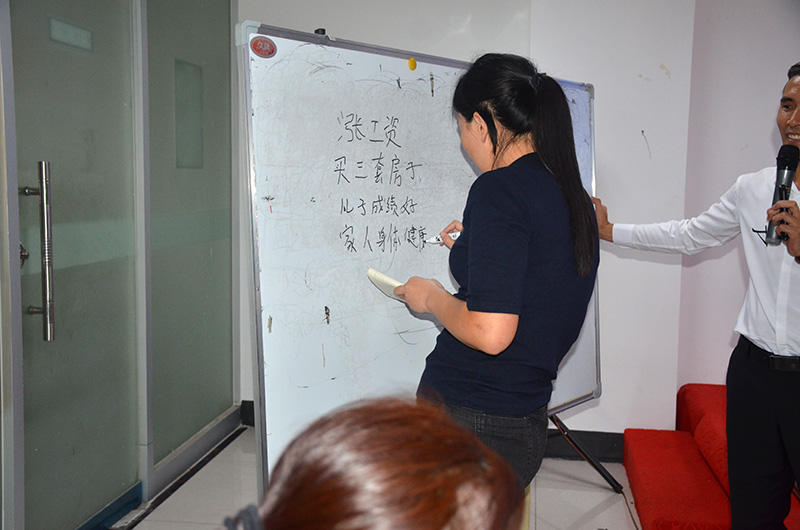 涨工资
买三套房子
儿子成绩好
家人身体健康